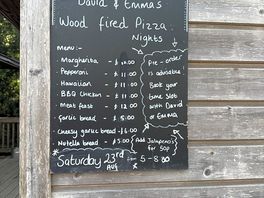 David & Emma's
Wood fired Pizza
Nights
Menu:-
· Margharita - £10.00
· Pepperoni - £11.00
· Hawaiian - £11.00
· BBQ Chicken - £12.00
· Meat feast - £12.00
· Garlic bread - £5.00
· Cheesy garlic bread - £6.00
· Nutella bread - £5.00
Pre-order
is advisable
Book your
time slot
with David
or Emma
Add Jalapenos
for 50p
* Saturday 23rd Aug 5-8:30